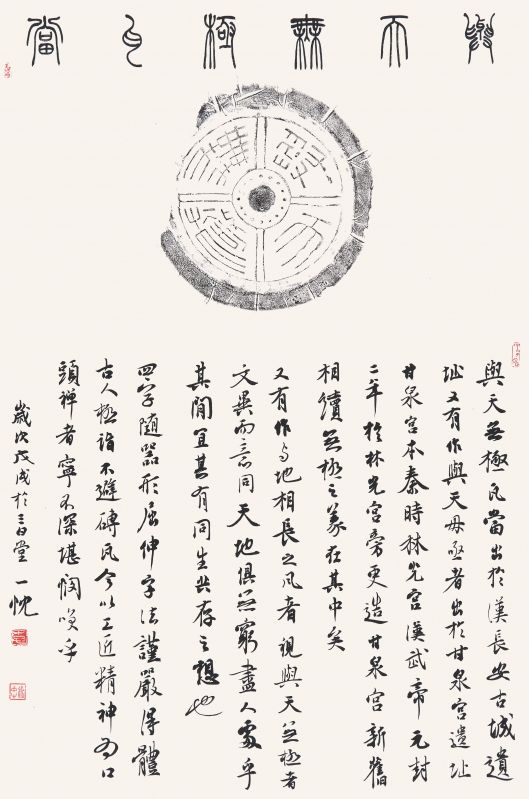 與天無極瓦當
與天無極
與天無極瓦當出於漢長安古城遺
址又有作與天毋亟者出於甘泉宮遺址
甘泉宮本秦時林光宮漢武帝元封
二年於林光宮旁更造甘泉宮新舊
相續無極之義在其中矣
又有作与地相長之瓦者視與天無極者
文異而意同天地俱無窮盡人處乎
其間宜其有同生共存之想也
四字隨器形屈伸字法謹嚴得體
古人極詣不避磚瓦今以工匠精神為口
頭禪者寧不深堪憫嘆乎
歲次戊戌於三堂一忱